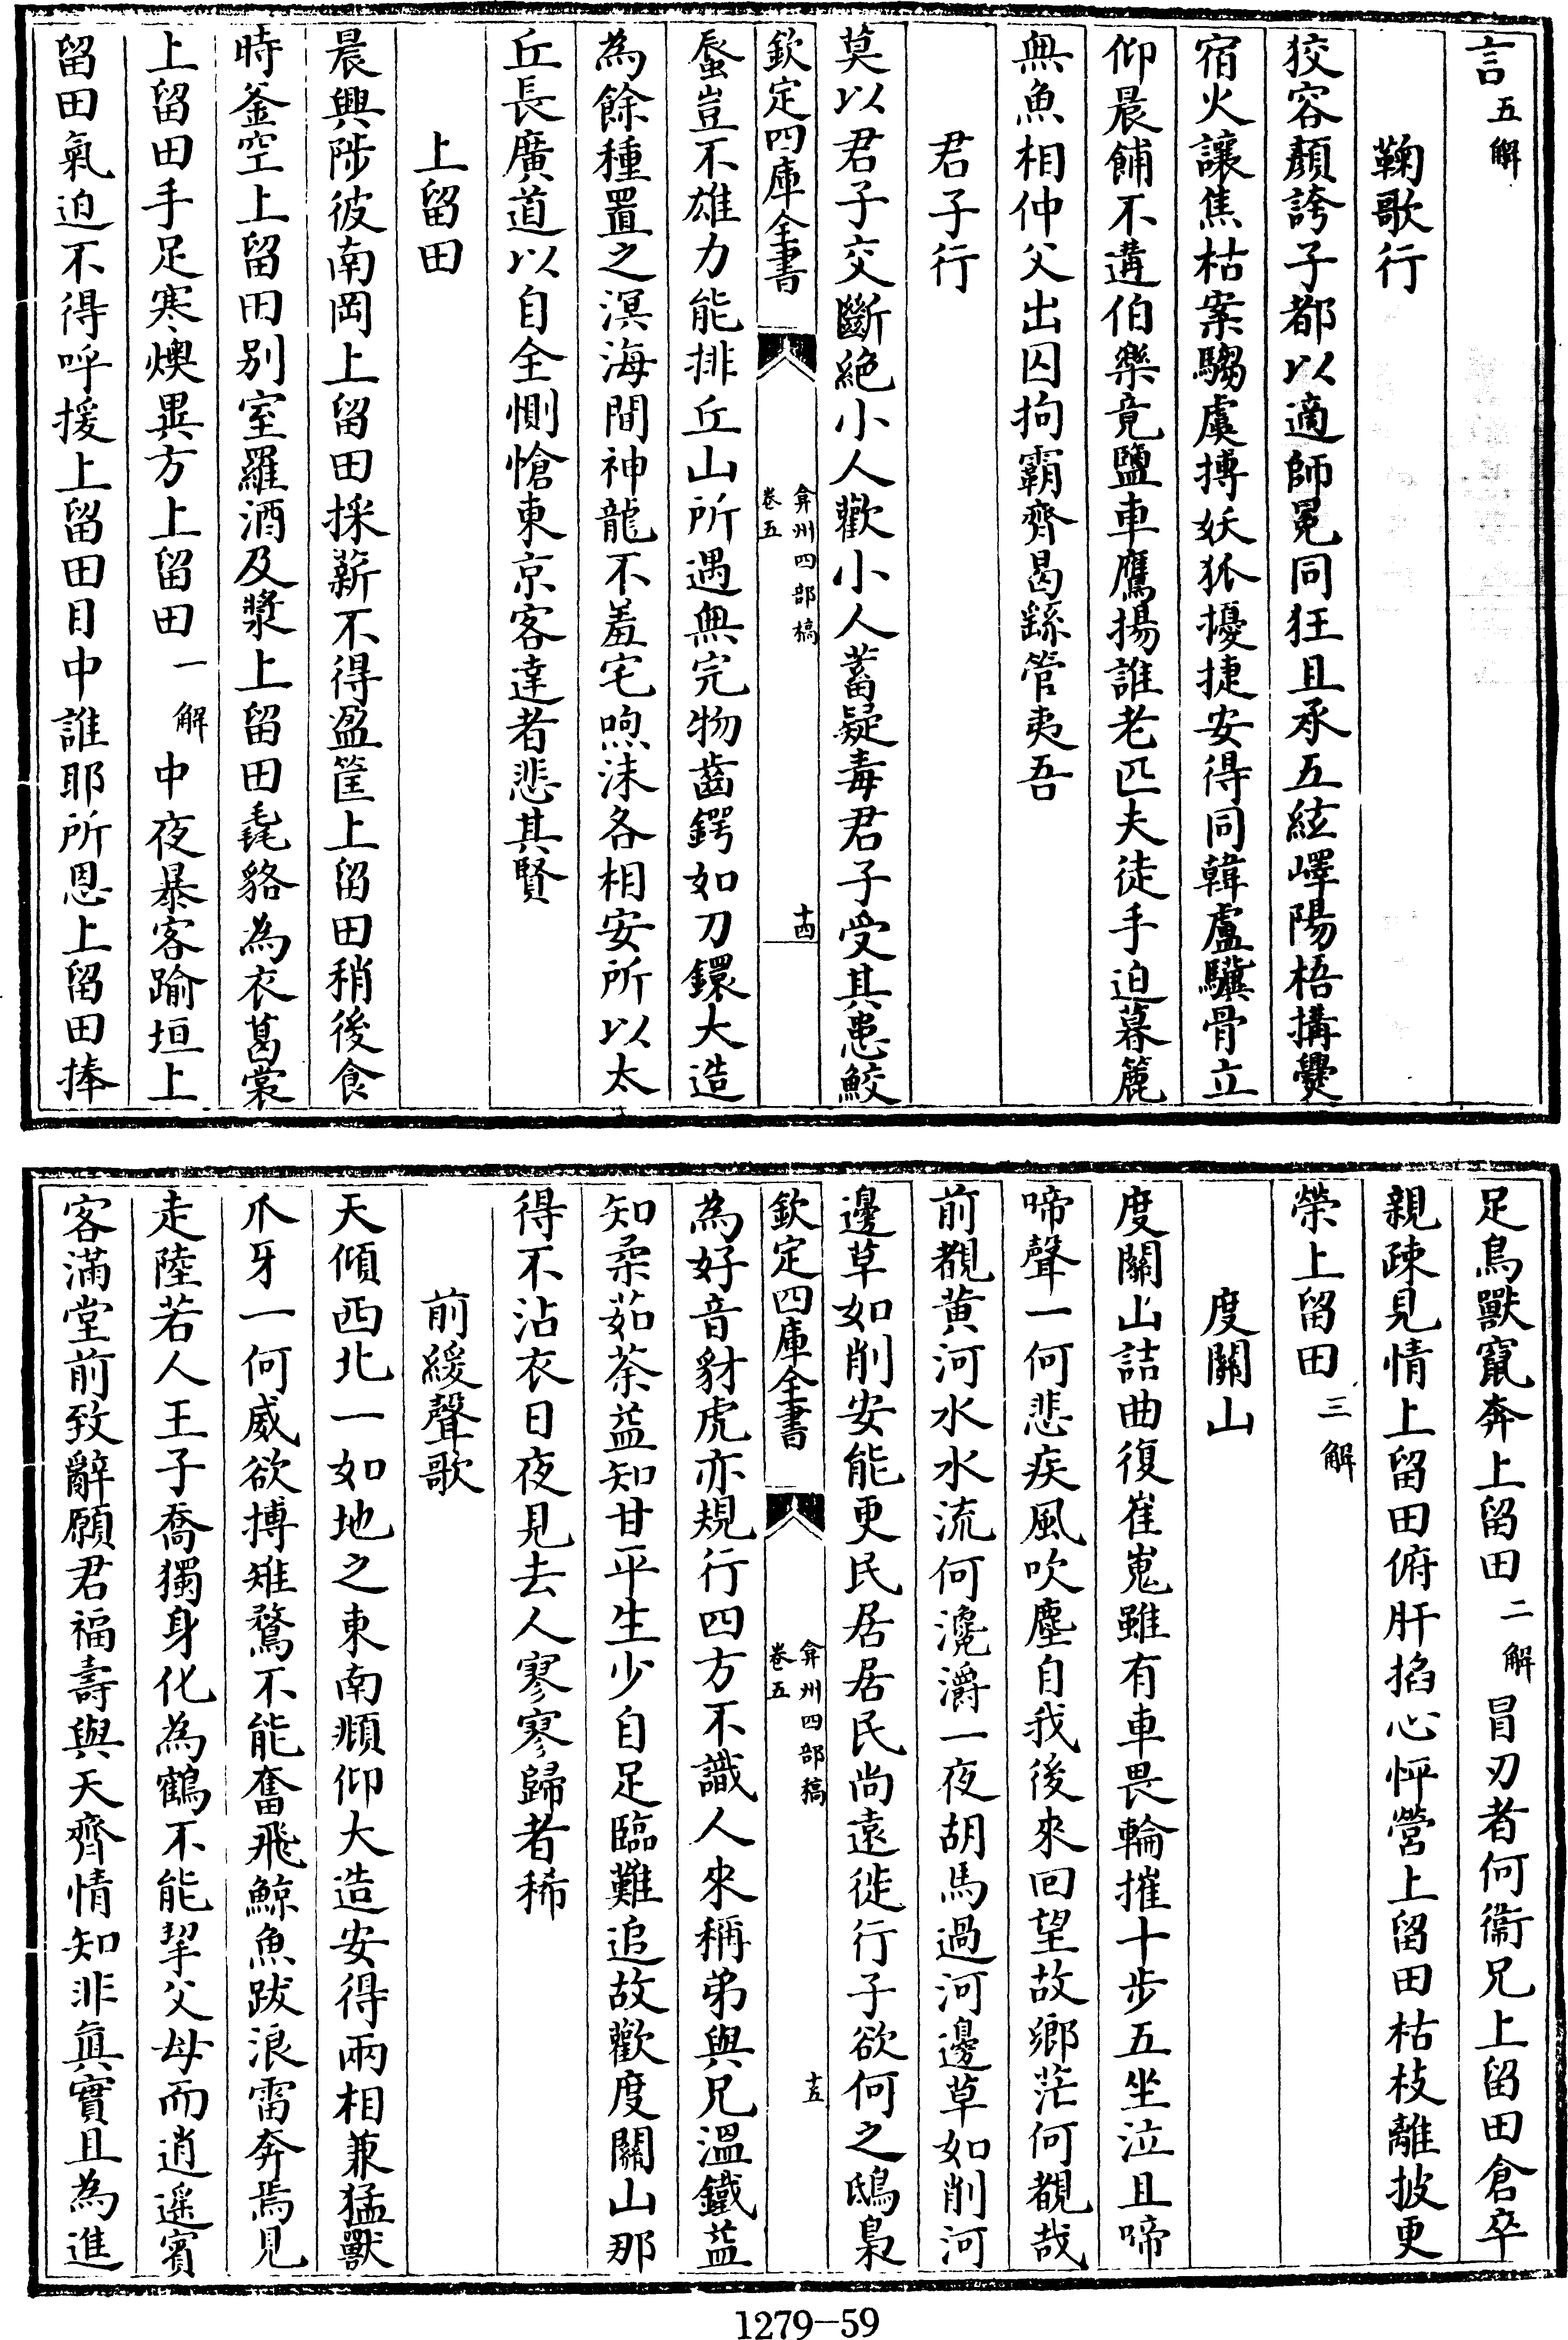 言五解
鞠歌行
狡容顏誇子都以適師冕同狂且承五絃嶧陽梧搆㸑
宿火讓焦枯案騶虞搏妖狐擾捷安得同韓盧驥骨立
仰晨餔不遘伯樂竟鹽車鷹揚誰老匹夫徒手迫暮簏
無魚相仲父出囚拘霸齊曷繇管夷吾
君子行
莫以君子交斷絶小人歡小人蓄疑毒君子受其患鮫
欽定四庫全書
弇州四部稿
卷五
十四
蜃豈不雄力能排丘山所遇無完物齒鍔如刀鐶大造
為餘種置之溟海間神龍不羞宅喣沫各相安所以太
丘長廣道以自全惻愴東京客達者悲其賢
上留田
晨興陟彼南岡上留田採薪不得盈筐上留田稍後食
時釜空上留田别室羅酒及漿上留田毳貉為衣葛裳
上留田手足寒燠異方上留田一解中夜暴客踰垣上
留田氣迫不得呼援上留田目中誰耶所恩上留田捧
足鳥獸竄奔上留田二解冒刃者何衞兄上留田倉卒
親疎見情上留田俯肝掐心怦營上留田枯枝離披更
榮上留田三解
度關山
度關山詰曲復崔嵬雖有車畏輪摧十步五坐泣且啼
啼聲一何悲疾風吹塵自我後來回望故鄉茫何覩哉
前覩黄河水水流何瀺灂一夜胡馬過河邊草如削河
邊草如削安能更民居居民尚遠徙行子欲何之鴟梟
欽定四庫全書
弇州四部稿
卷五
十五
為好音豺虎亦規行四方不識人來稱弟與兄溫鐵益
知柔茹荼益知甘平生少自足臨難追故歡度關山那
得不沾衣日夜見去人寥寥歸者稀
前緩聲歌
天傾西北一如地之東南頫仰大造安得兩相兼猛獸
爪牙一何威欲搏雉鶩不能奮飛鯨魚跋浪雷奔焉見
走陸若人王子喬獨身化為鶴不能挈父母而逍遥賓
客滿堂前致辭願君福壽與天齊情知非眞實且為進
1279—59